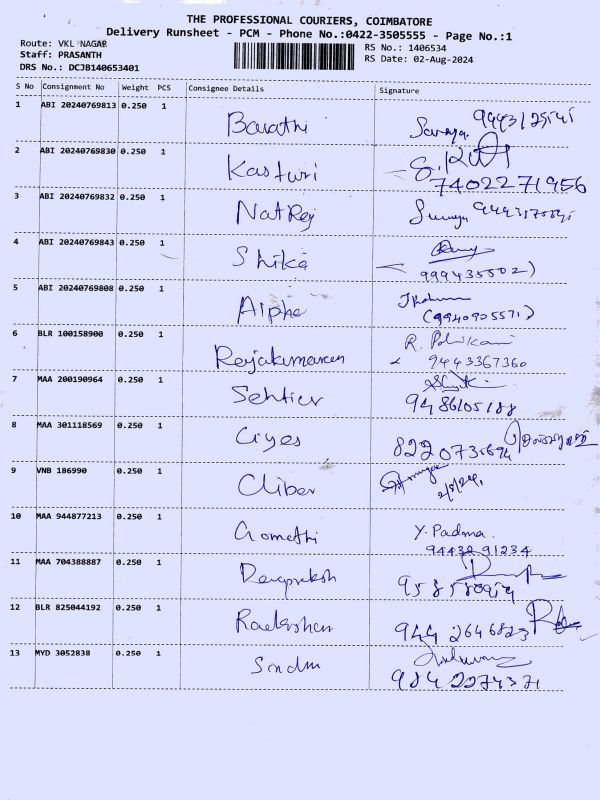 THE PROFESSIONAL COURIERS, COIMBATORE
Delivery Runsheet - PCM - Phone No.:0422-3505555 - Page No.:1
Route: VKL NAGAR
Staff: PRASANTH
DRS No.: DCJB140653401
RS No.: 1406534
RS Date: 02-Aug-2024
S No Consignment No Weight PCS Consignee Details Signature
1 ABI 20240769813 0.250 1 Barathi
2 ABI 20240769830 0.250 1 Kasturi
7402271956
3 ABI 20240769832 0.250 1 NatRej
4 ABI 20240769843 0.250 1 Shika
5 ABI 20240769808 0.250 1 Alpha
(9940905571)
6 BLR 100158900 0.250 1 Rejakumaren R.
9443367360
7 MAA 200190964 0.250 1
9486105188
8 MAA 301118569 0.250 1
9 VNB 186990 0.250 1
10 MAA 944877213 0.250 1 Gomathi Y. Padma.
94432 91234
11 MAA 704388887 0.250 1
12 BLR 825044192 0.250 1
944 2646823
13 MYD 3052838 0.250 1
9842274371